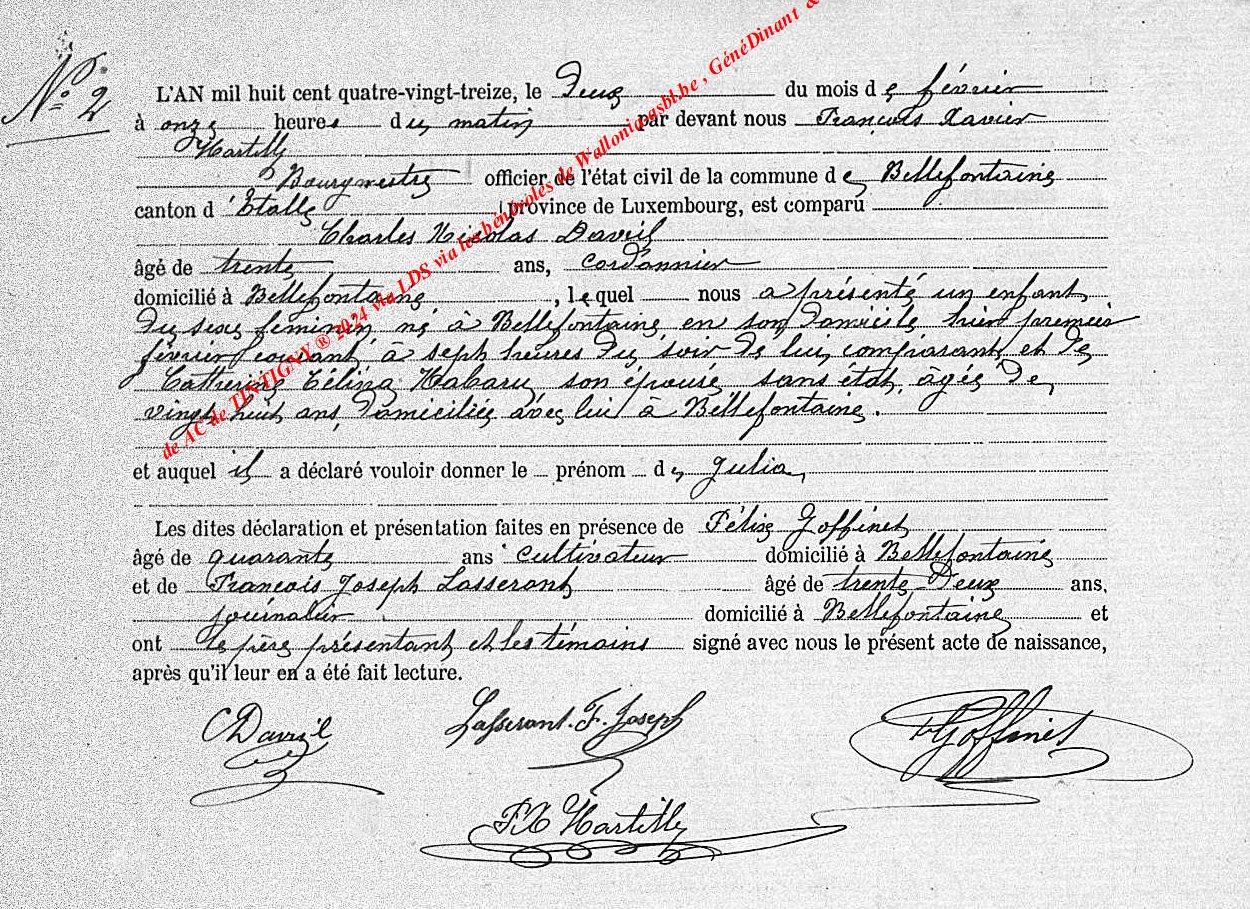 N° 2
L'AN mil huit cent quatre-vingt-treize, le Deux du mois de février
à onze heures du matin par devant nous François Xavier
Hartilly
Bourgmestre officier de l'état civil de la commune de Bellefontaine
canton d'Etalle province de Luxembourg, est comparu
Charles Nicolas Davril
âgé de trente ans, cordonnier
domicilié à Bellefontaine, lequel nous a présenté un enfant
du sexe féminin, né à Bellefontaine en son domicile hier premier
février courant à sept heures du soir de lui comparant et de
Catherine Célina Habaru son épouse sans état, âgée de
vingt huit ans, domiciliée avec lui à Bellefontaine.
et auquel il a déclaré vouloir donner le prénom de Julia
Les dites déclaration et présentation faites en présence de Félix Goffinet
âgé de quarante ans cultivateur domicilié à Bellefontaine
et de François Joseph Lasseront âgé de trente deux ans,
journalier domicilié à Bellefontaine et
ont le père présentant et les témoins signé avec nous le présent acte de naissance,
après qu'il leur en a été fait lecture.
C Davril Lasseront. F. Joseph F Goffinet
F.X Hartilly
de AC de TINTIGNY ® 2024 via LDS via les bénévoles de Wallonia-asbl.be , GénéDinant &